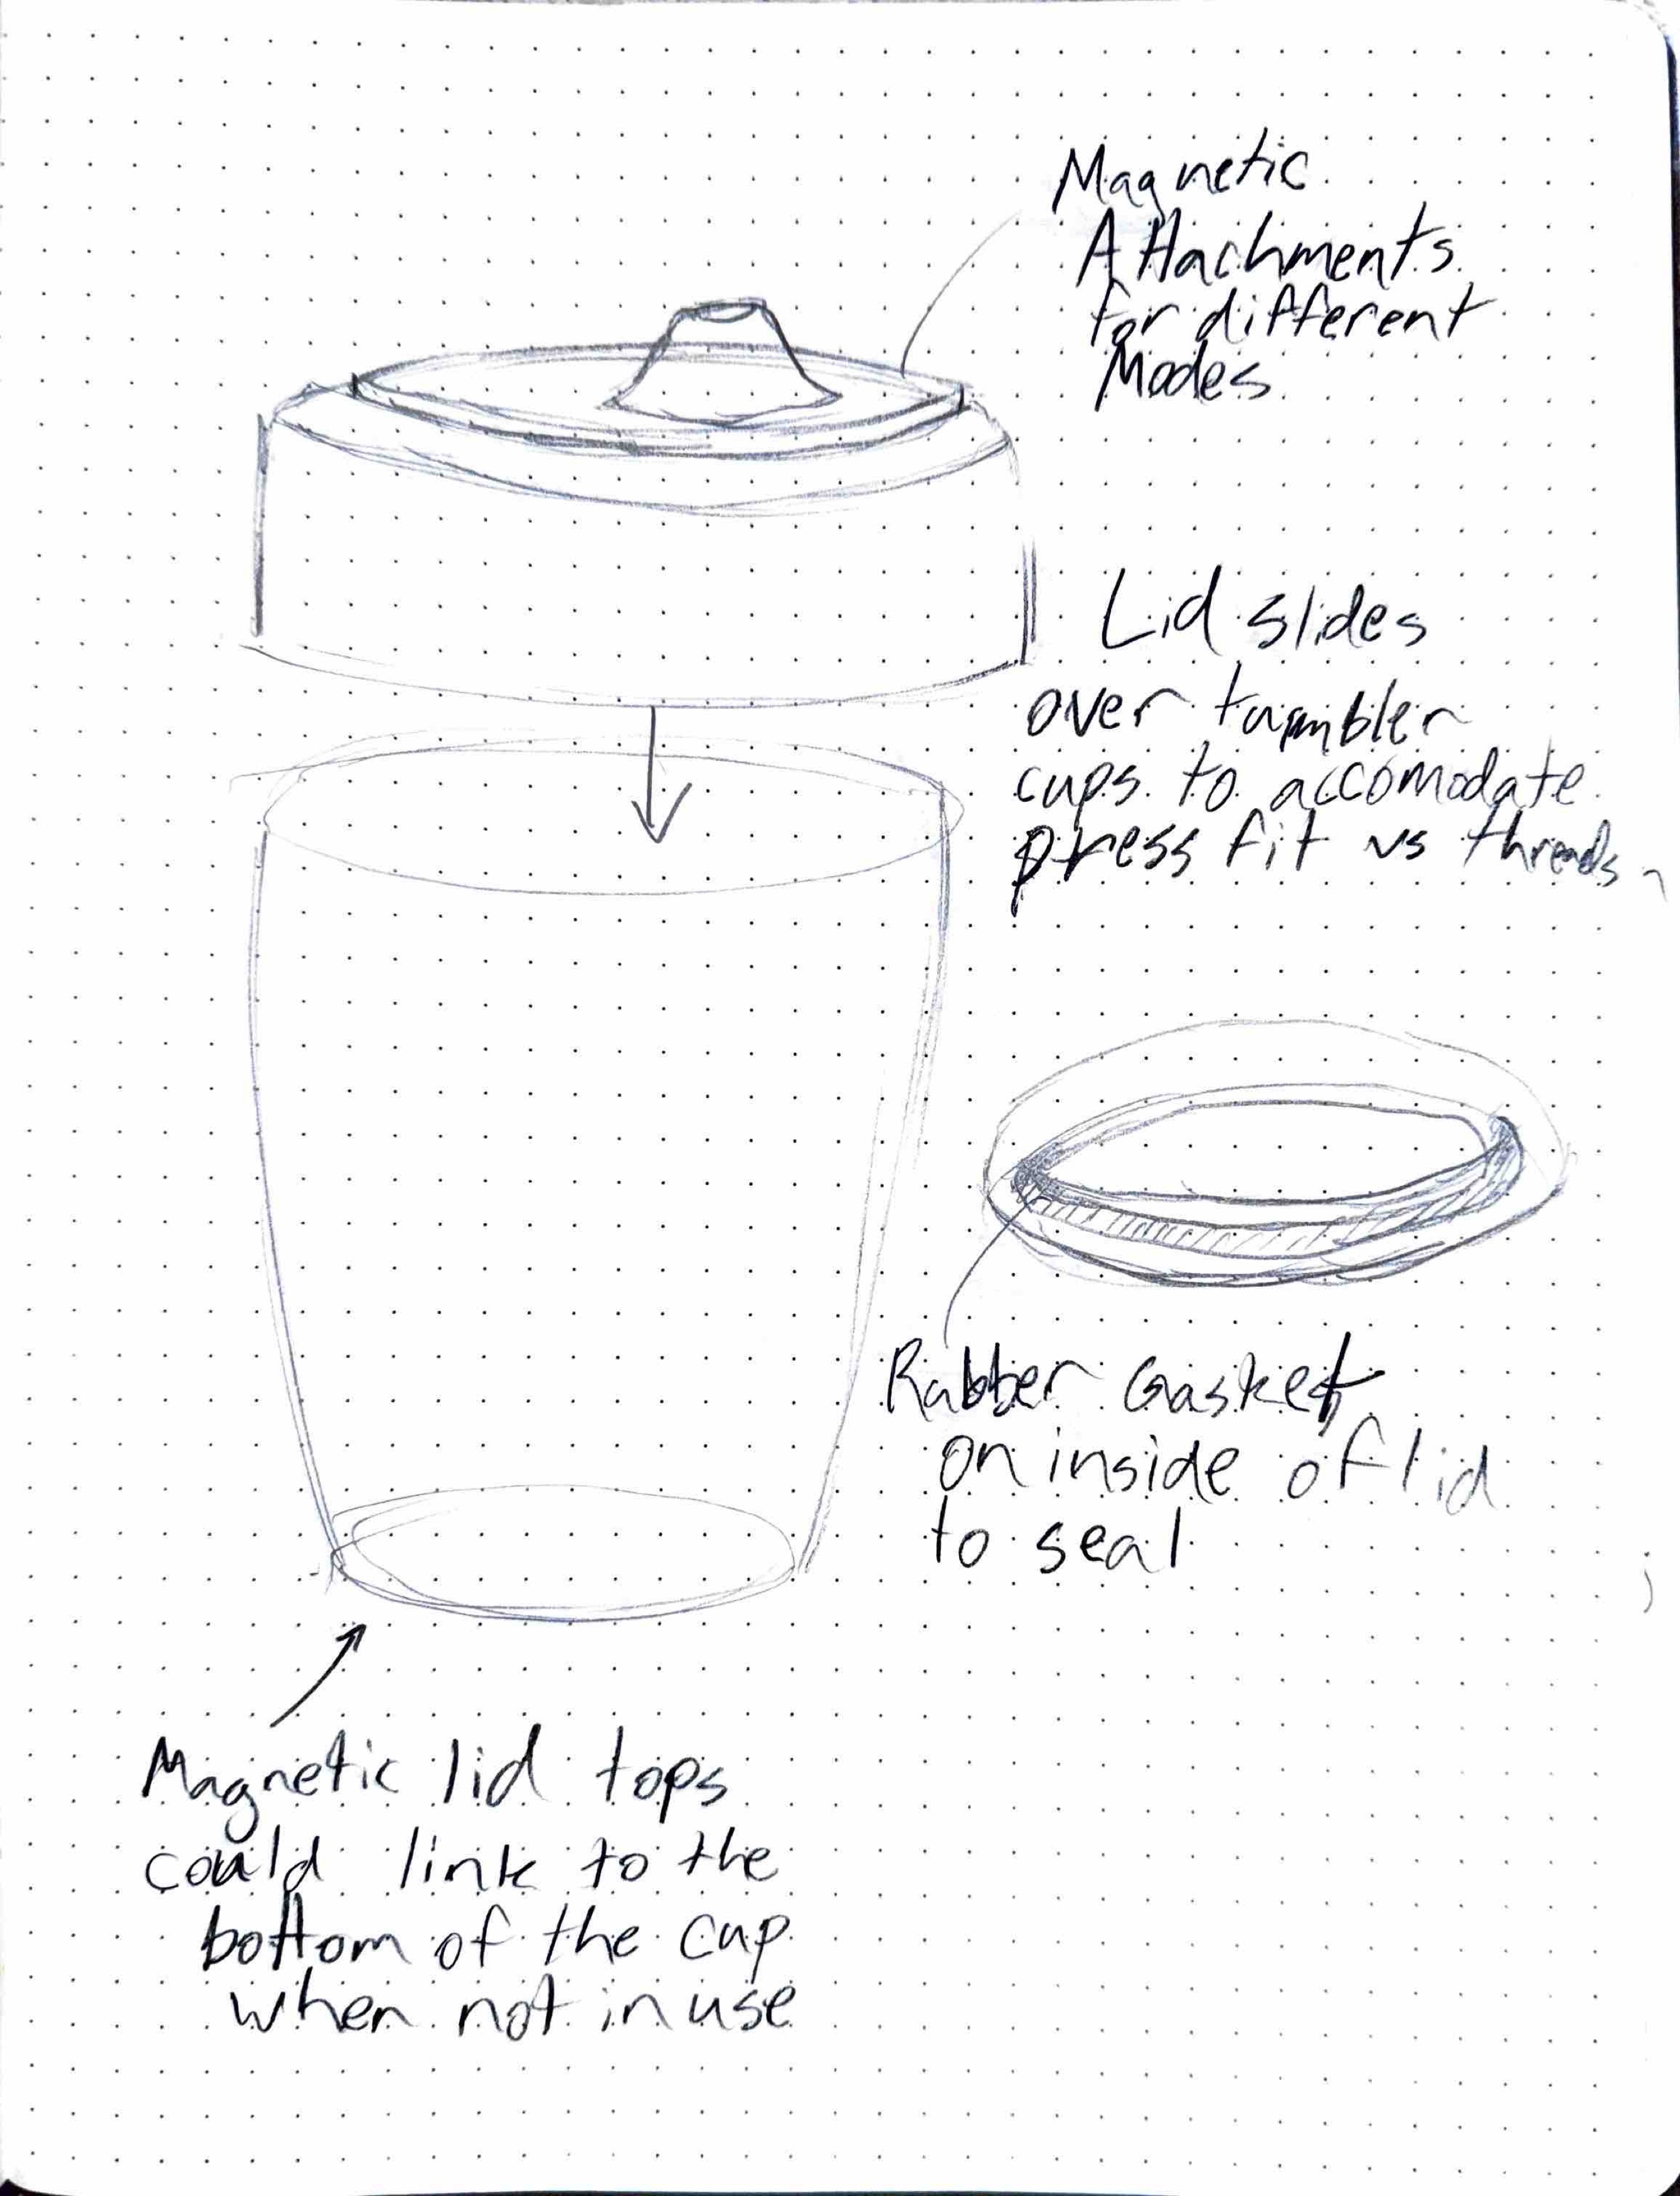 Magnetic
Attachments
for different
Modes
Lid slides
over tumbler
cups to accomodate
press fit vs threads
Rubber Gasket
on inside of lid
to seal
Magnetic lid tops
could link to the
bottom of the cup
when not in use